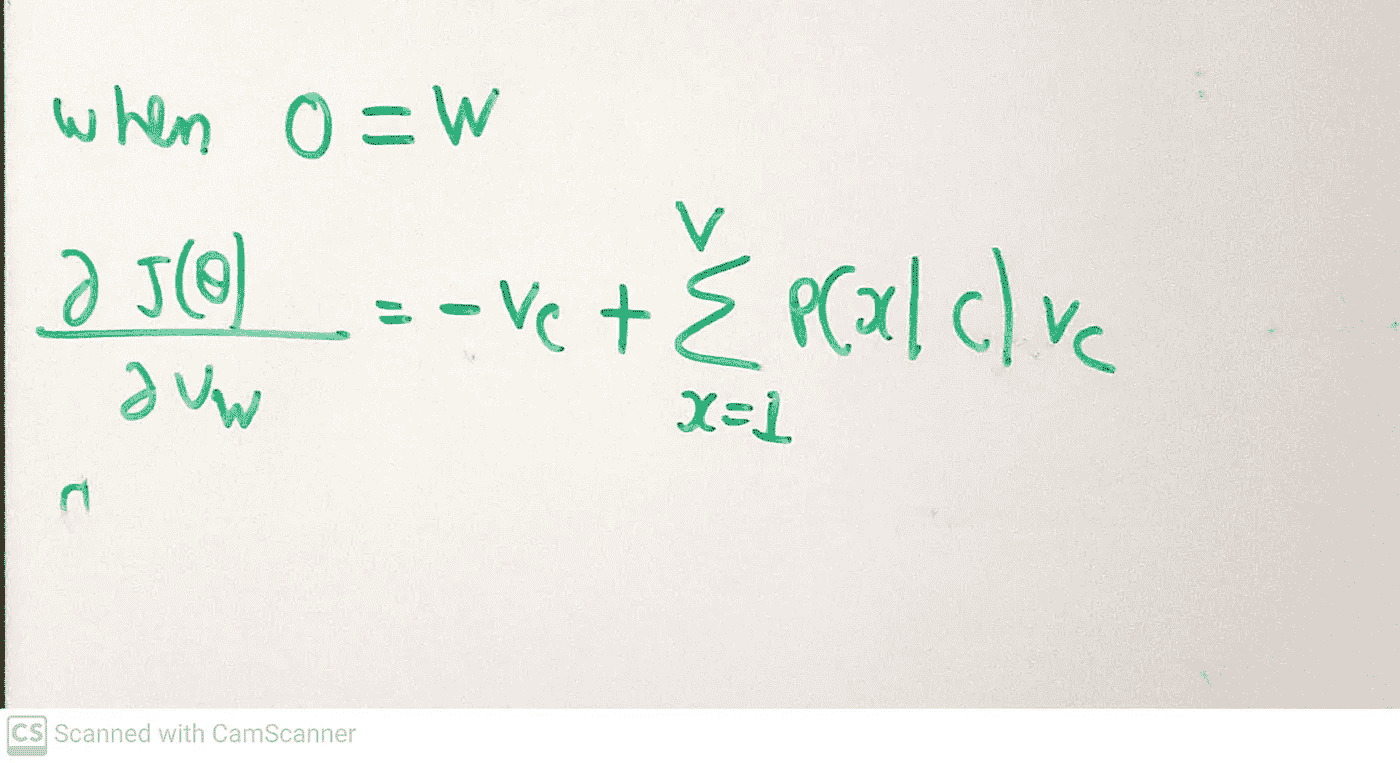 when O = W
∂ J(θ) / ∂ U_W = - V_C + ∑_{x=1}^{V} P(x | C) V_C
CS Scanned with CamScanner